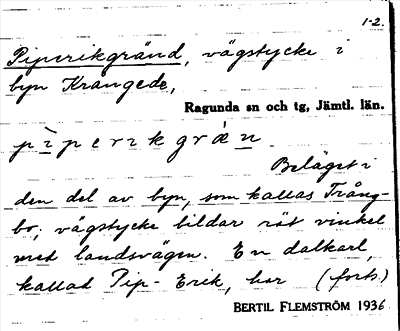 1-2.
Piperikgränd, vägstycke i
byn Krangede,
Ragunda sn och tg, Jämtl. län.
pìperikgrǽn
Beläget i
den del av byn, som kallas Trång-
bo; vägstycke bildar rät vinkel
med landsvägen. En dalkarl,
kallad Pip-Erik, har (forts.)
BERTIL FLEMSTRÖM 1936